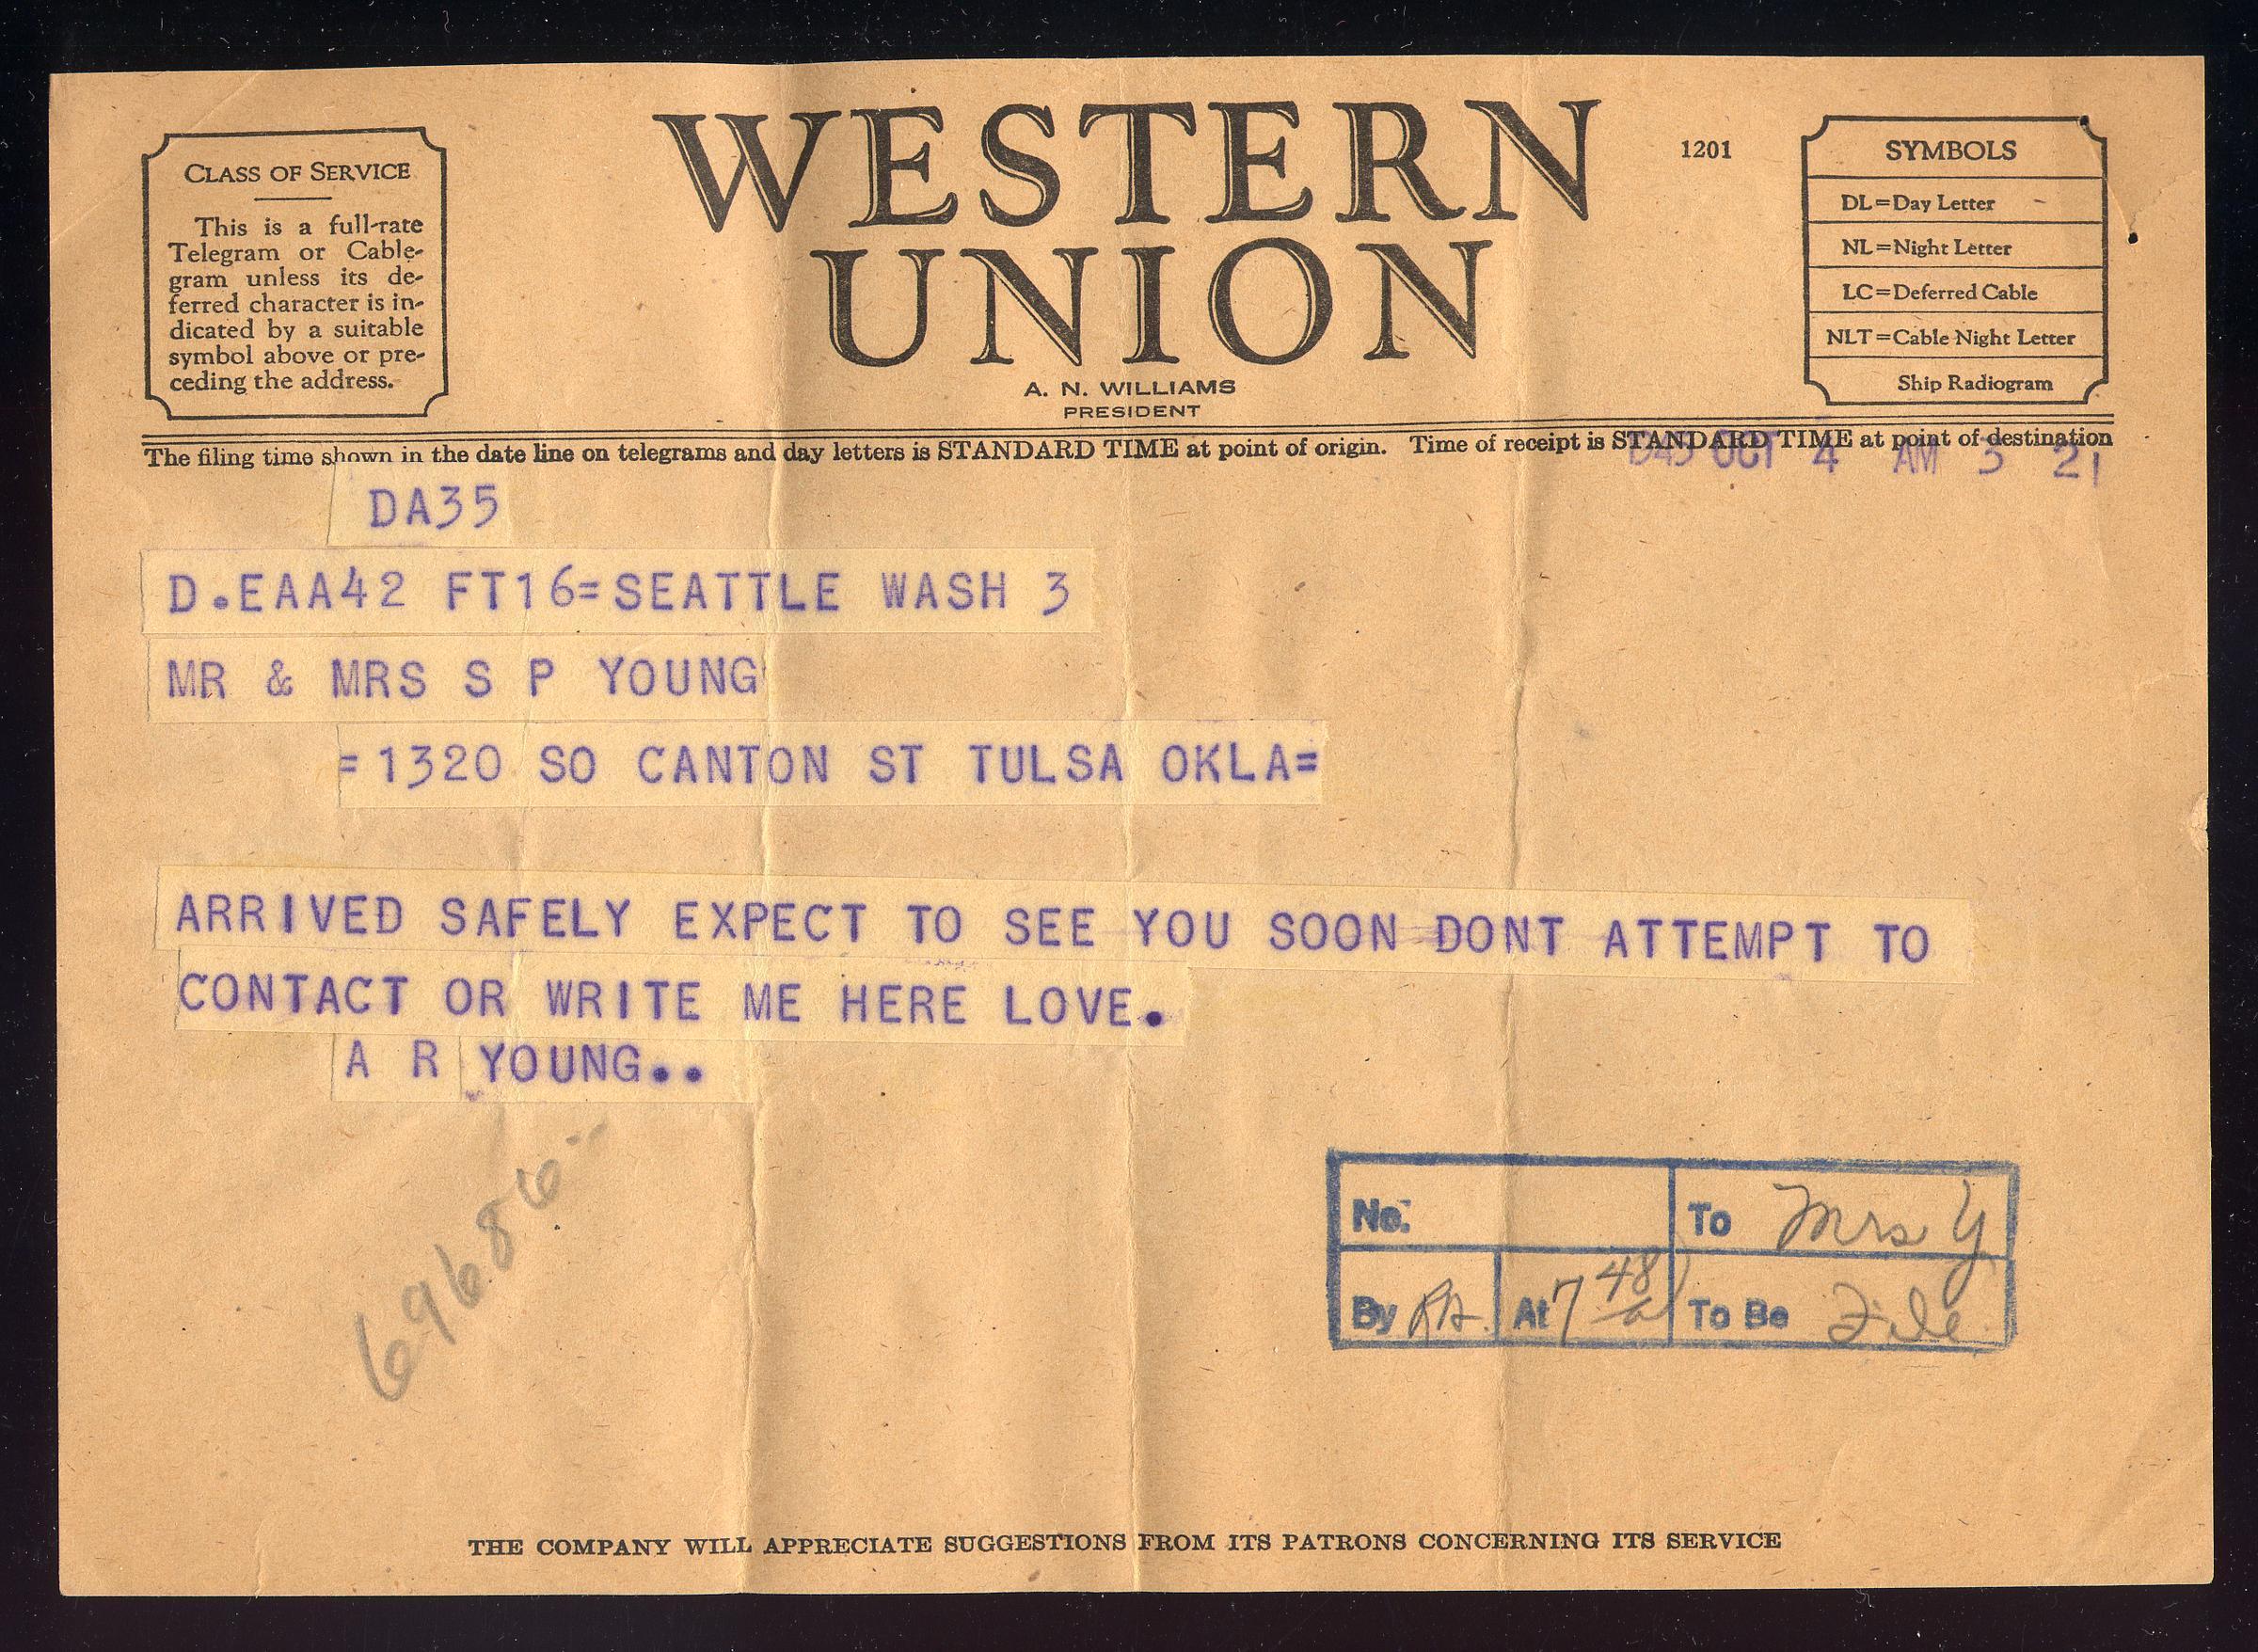 CLASS OF SERVICE
This is a full-rate
Telegram or Cable-
gram unless its de-
ferred character is in-
dicated by a suitable
symbol above or pre-
ceding the address.
WESTERN
UNION
A. N. WILLIAMS
PRESIDENT
1201
SYMBOLS
DL=Day Letter
NL=Night Letter
LC=Deferred Cable
NLT=Cable Night Letter
Ship Radiogram
The filing time shown in the date line on telegrams and day letters is STANDARD TIME at point of origin. Time of receipt is STANDARD TIME at point of destination
OCT 4 AM 3 21
DA35
D.EAA42 FT16=SEATTLE WASH 3
MR & MRS S P YOUNG
=1320 SO CANTON ST TULSA OKLA=
ARRIVED SAFELY EXPECT TO SEE YOU SOON DONT ATTEMPT TO
CONTACT OR WRITE ME HERE LOVE.
A R YOUNG..
69686
No. To Mrs Y
By At 7 48 a To Be File
THE COMPANY WILL APPRECIATE SUGGESTIONS FROM ITS PATRONS CONCERNING ITS SERVICE